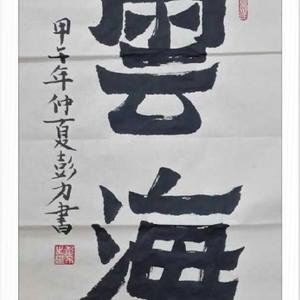 雲海
甲午年仲夏彭力書